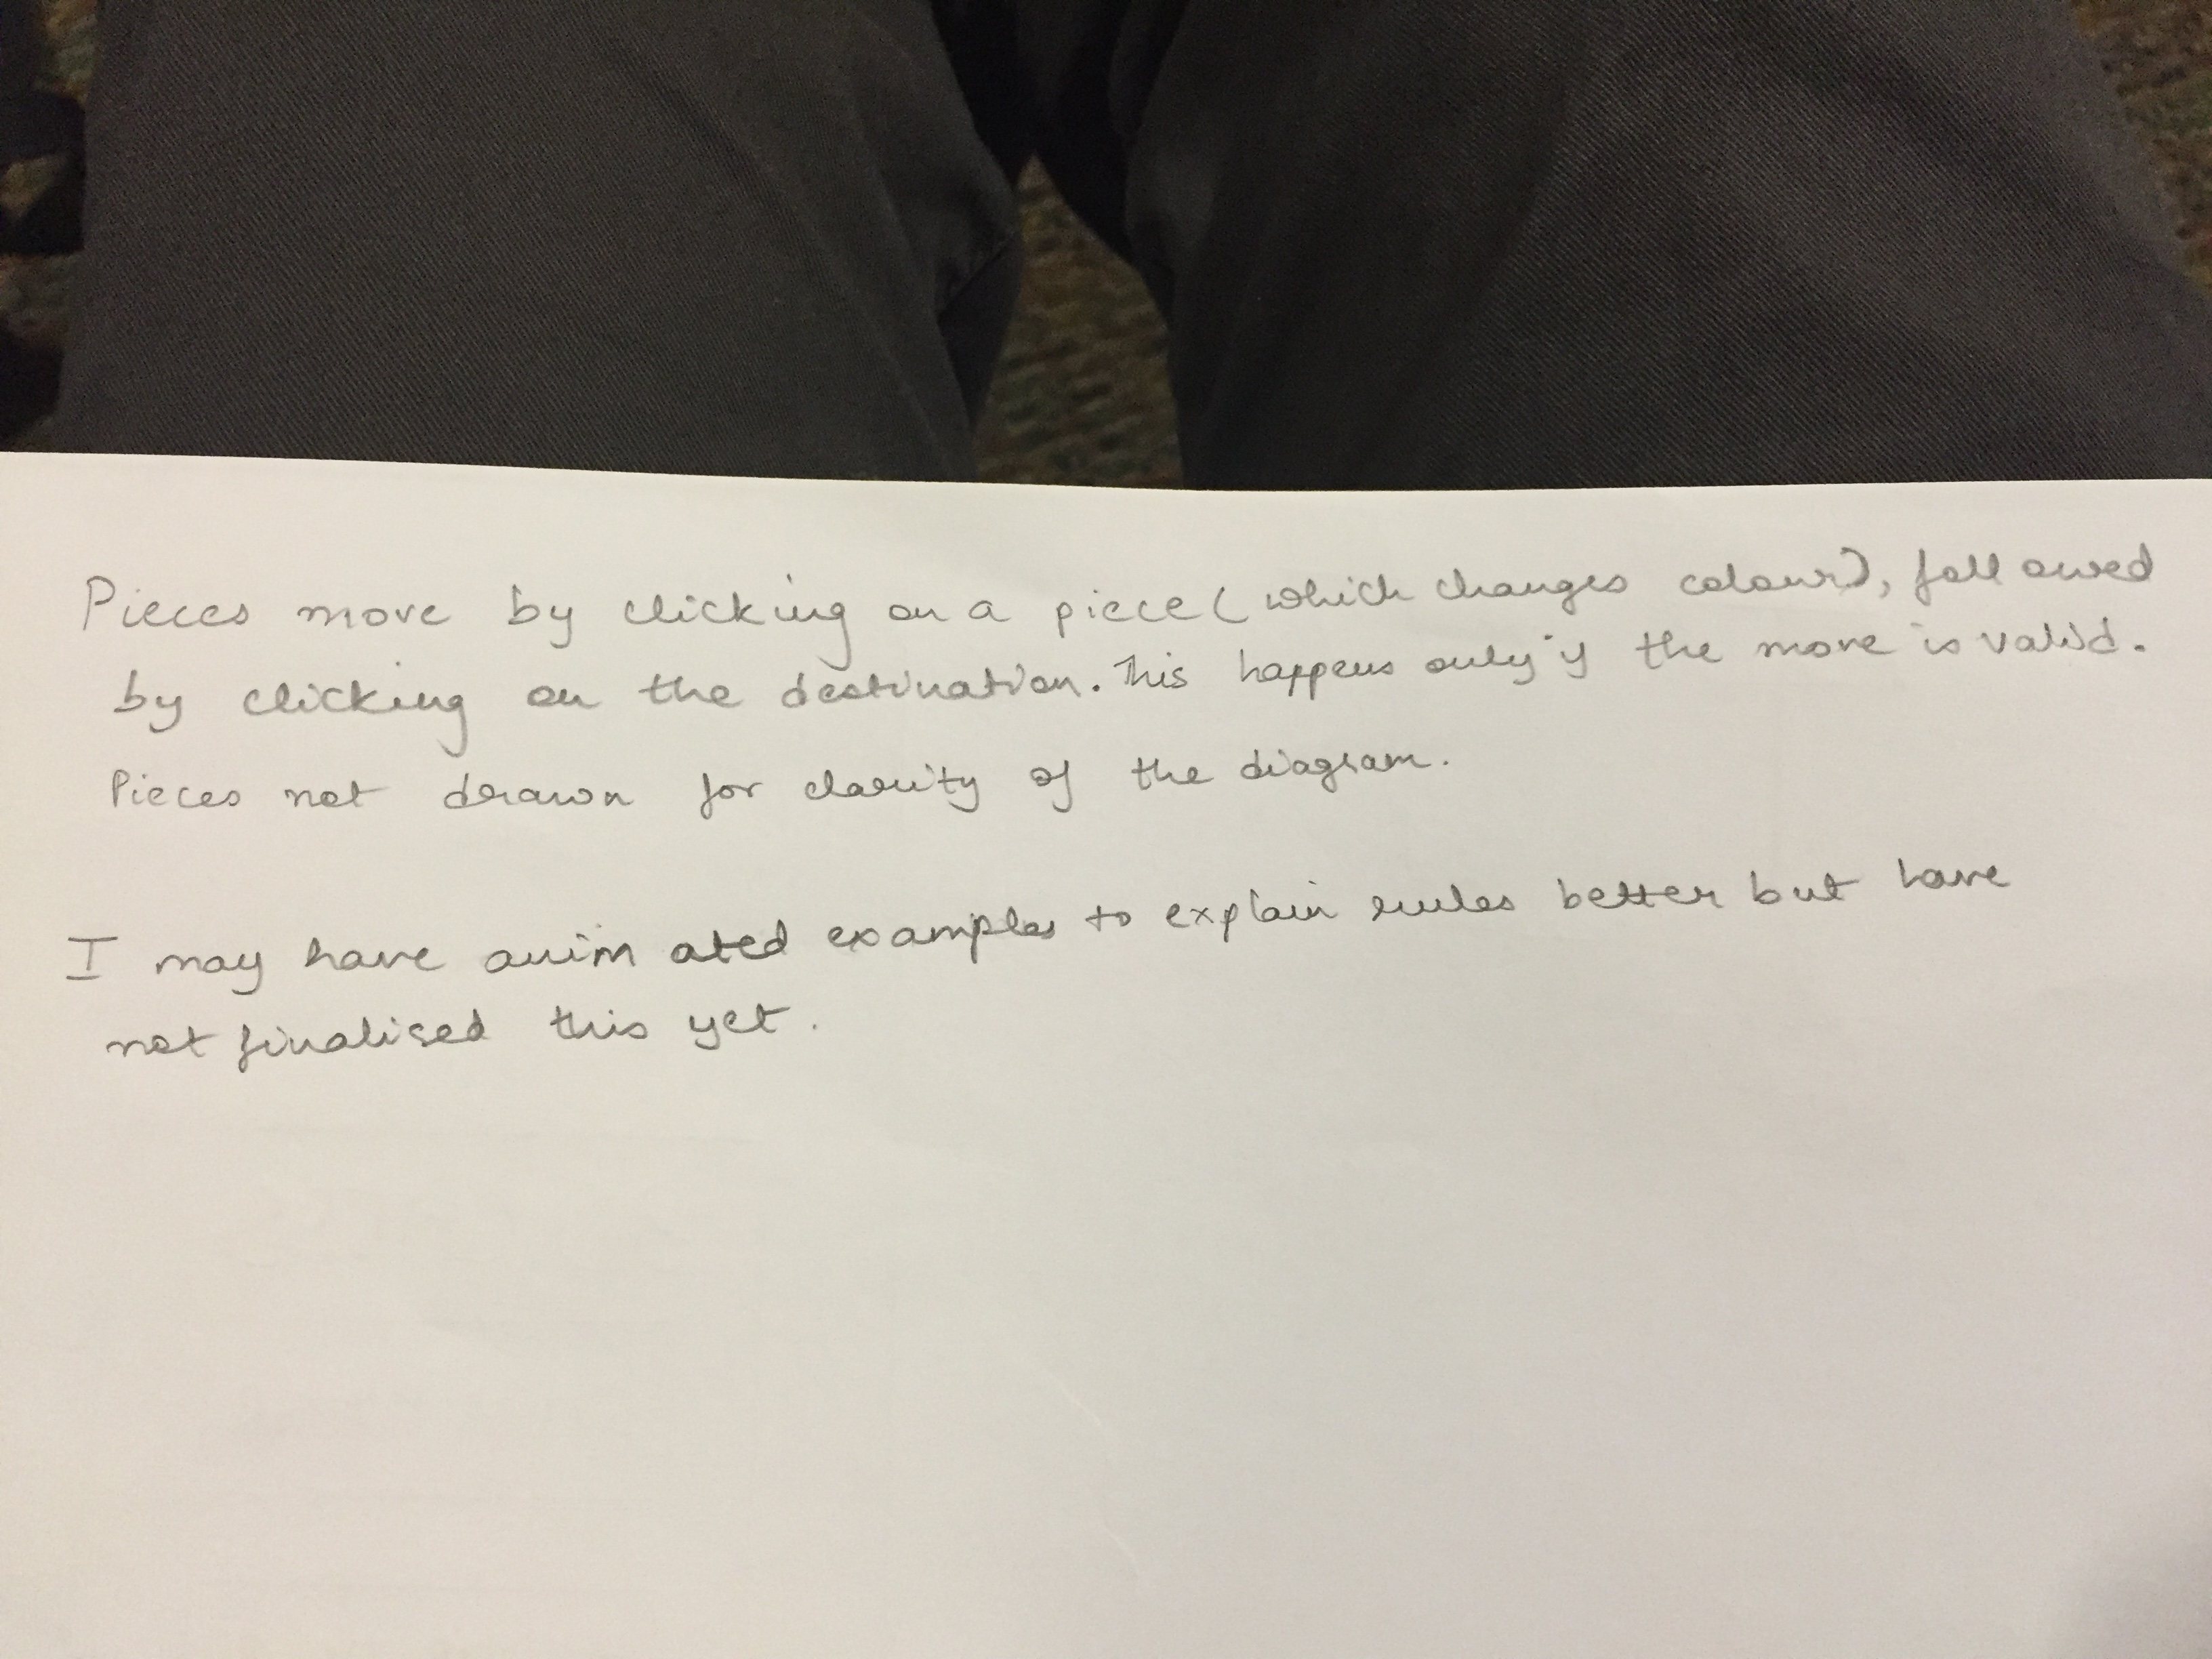 Pieces move by clicking on a piece (which changes colour), followed
by clicking on the destination. This happens only if the move is valid.
Pieces not drawn for clarity of the diagram.
I may have animated examples to explain rules better but have
not finalised this yet.